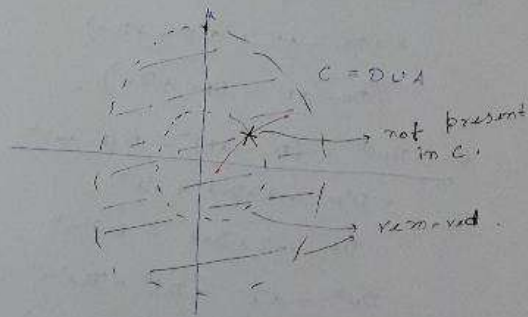 C = D ∪ A
not present
in C.
removed.